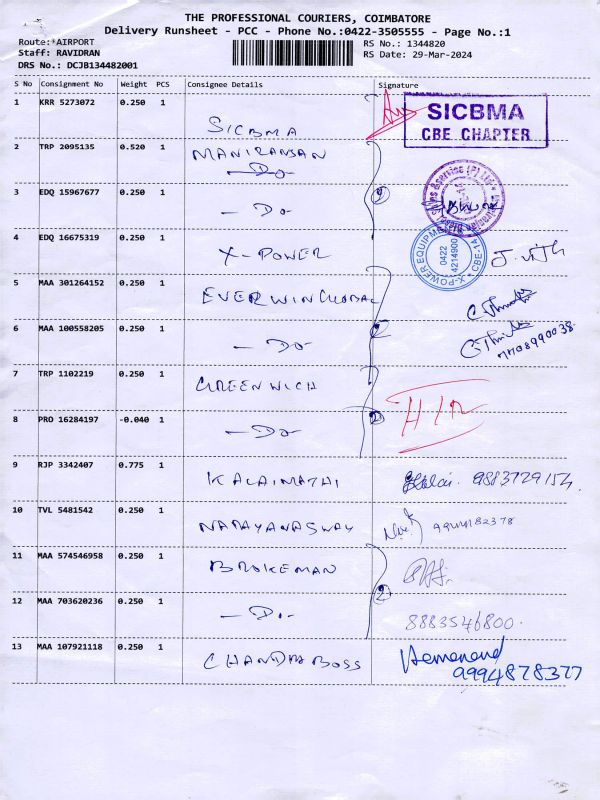 THE PROFESSIONAL COURIERS, COIMBATORE
Delivery Runsheet - PCC - Phone No.:0422-3505555 - Page No.:1
Route:*AIRPORT
RS No.: 1344820
Staff: RAVIDRAN
RS Date: 29-Mar-2024
DRS No.: DCJB134482001
S No Consignment No Weight PCS Consignee Details Signature
1 KRR 5273072 0.250 1
SICBMA
SICBMA
CBE CHAPTER
2 TRP 2095135 0.520 1
MANIRANJAN
- Do -
3 EDQ 15967677 0.250 1
- Do
4 EDQ 16675319 0.250 1
X-POWER
X-POWER EQUIPMENT
0422
4214900
CBE-14
5 MAA 301264152 0.250 1
EVERWIN GLOBAL
6 MAA 100558205 0.250 1
- Do -
7 TRP 1102219 0.250 1
GREENWICH
8 PRO 16284197 -0.040 1
- Do -
H/R
9 RJP 3342407 0.775 1
KALAIMATHI
10 TVL 5481542 0.250 1
NARAYANASWAY
11 MAA 574546958 0.250 1
BROKEMAN
2
12 MAA 703620236 0.250 1
- Do -
8883546800.
13 MAA 107921118 0.250 1
CHANDRABOSS
Hemanand
9994878377